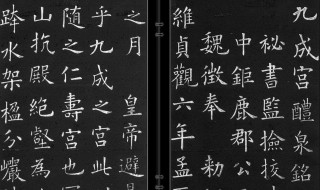 九成宮醴泉銘
秘書監撿挍
中鉅鹿郡公
魏徵奉勑
維貞觀六年孟
之月 皇帝避
乎九成之宮此
隨之仁壽宮也
山抗殿絕壑為
跨水架楹分巖